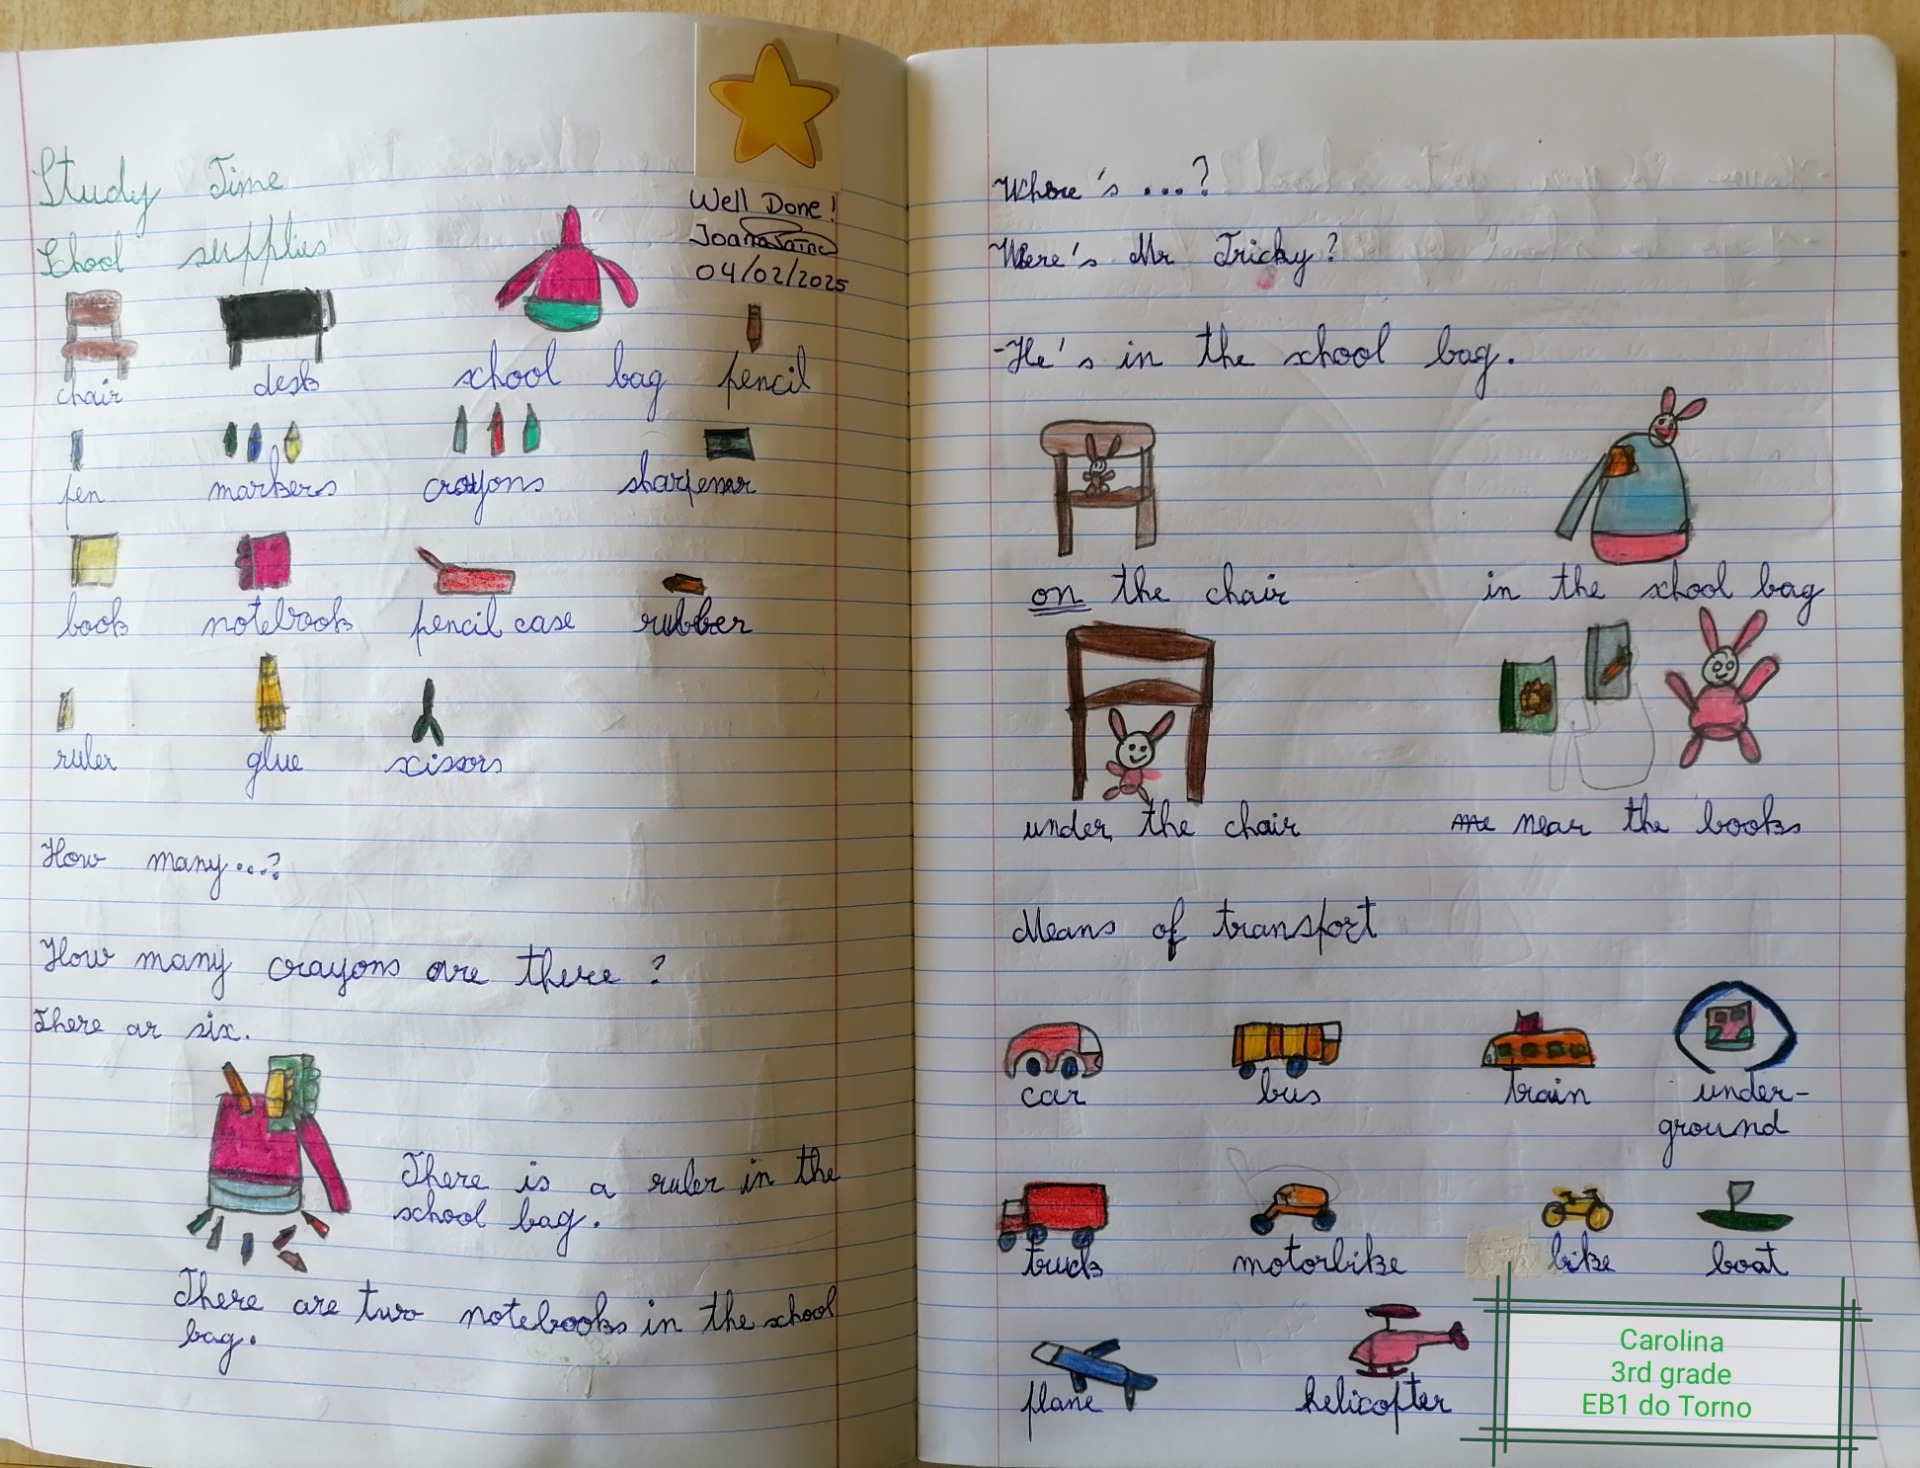 Study Time
School supplies
Well Done!
Joana
04/02/2025
chair desk school bag pencil
pen markers crayons sharpener
book notebook pencil case rubber
ruler glue scissors
How many...?
How many crayons are there?
There ar six.
There is a ruler in the
school bag.
There are two notebooks in the school
bag.
Where's ...?
Were's Mr Tricky?
-He's in the school bag.
on the chair in the school bag
under the chair near the books
Means of transport
car bus train under-
ground
truck motorbike bike boat
plane helicopter
Carolina
3rd grade
EB1 do Torno